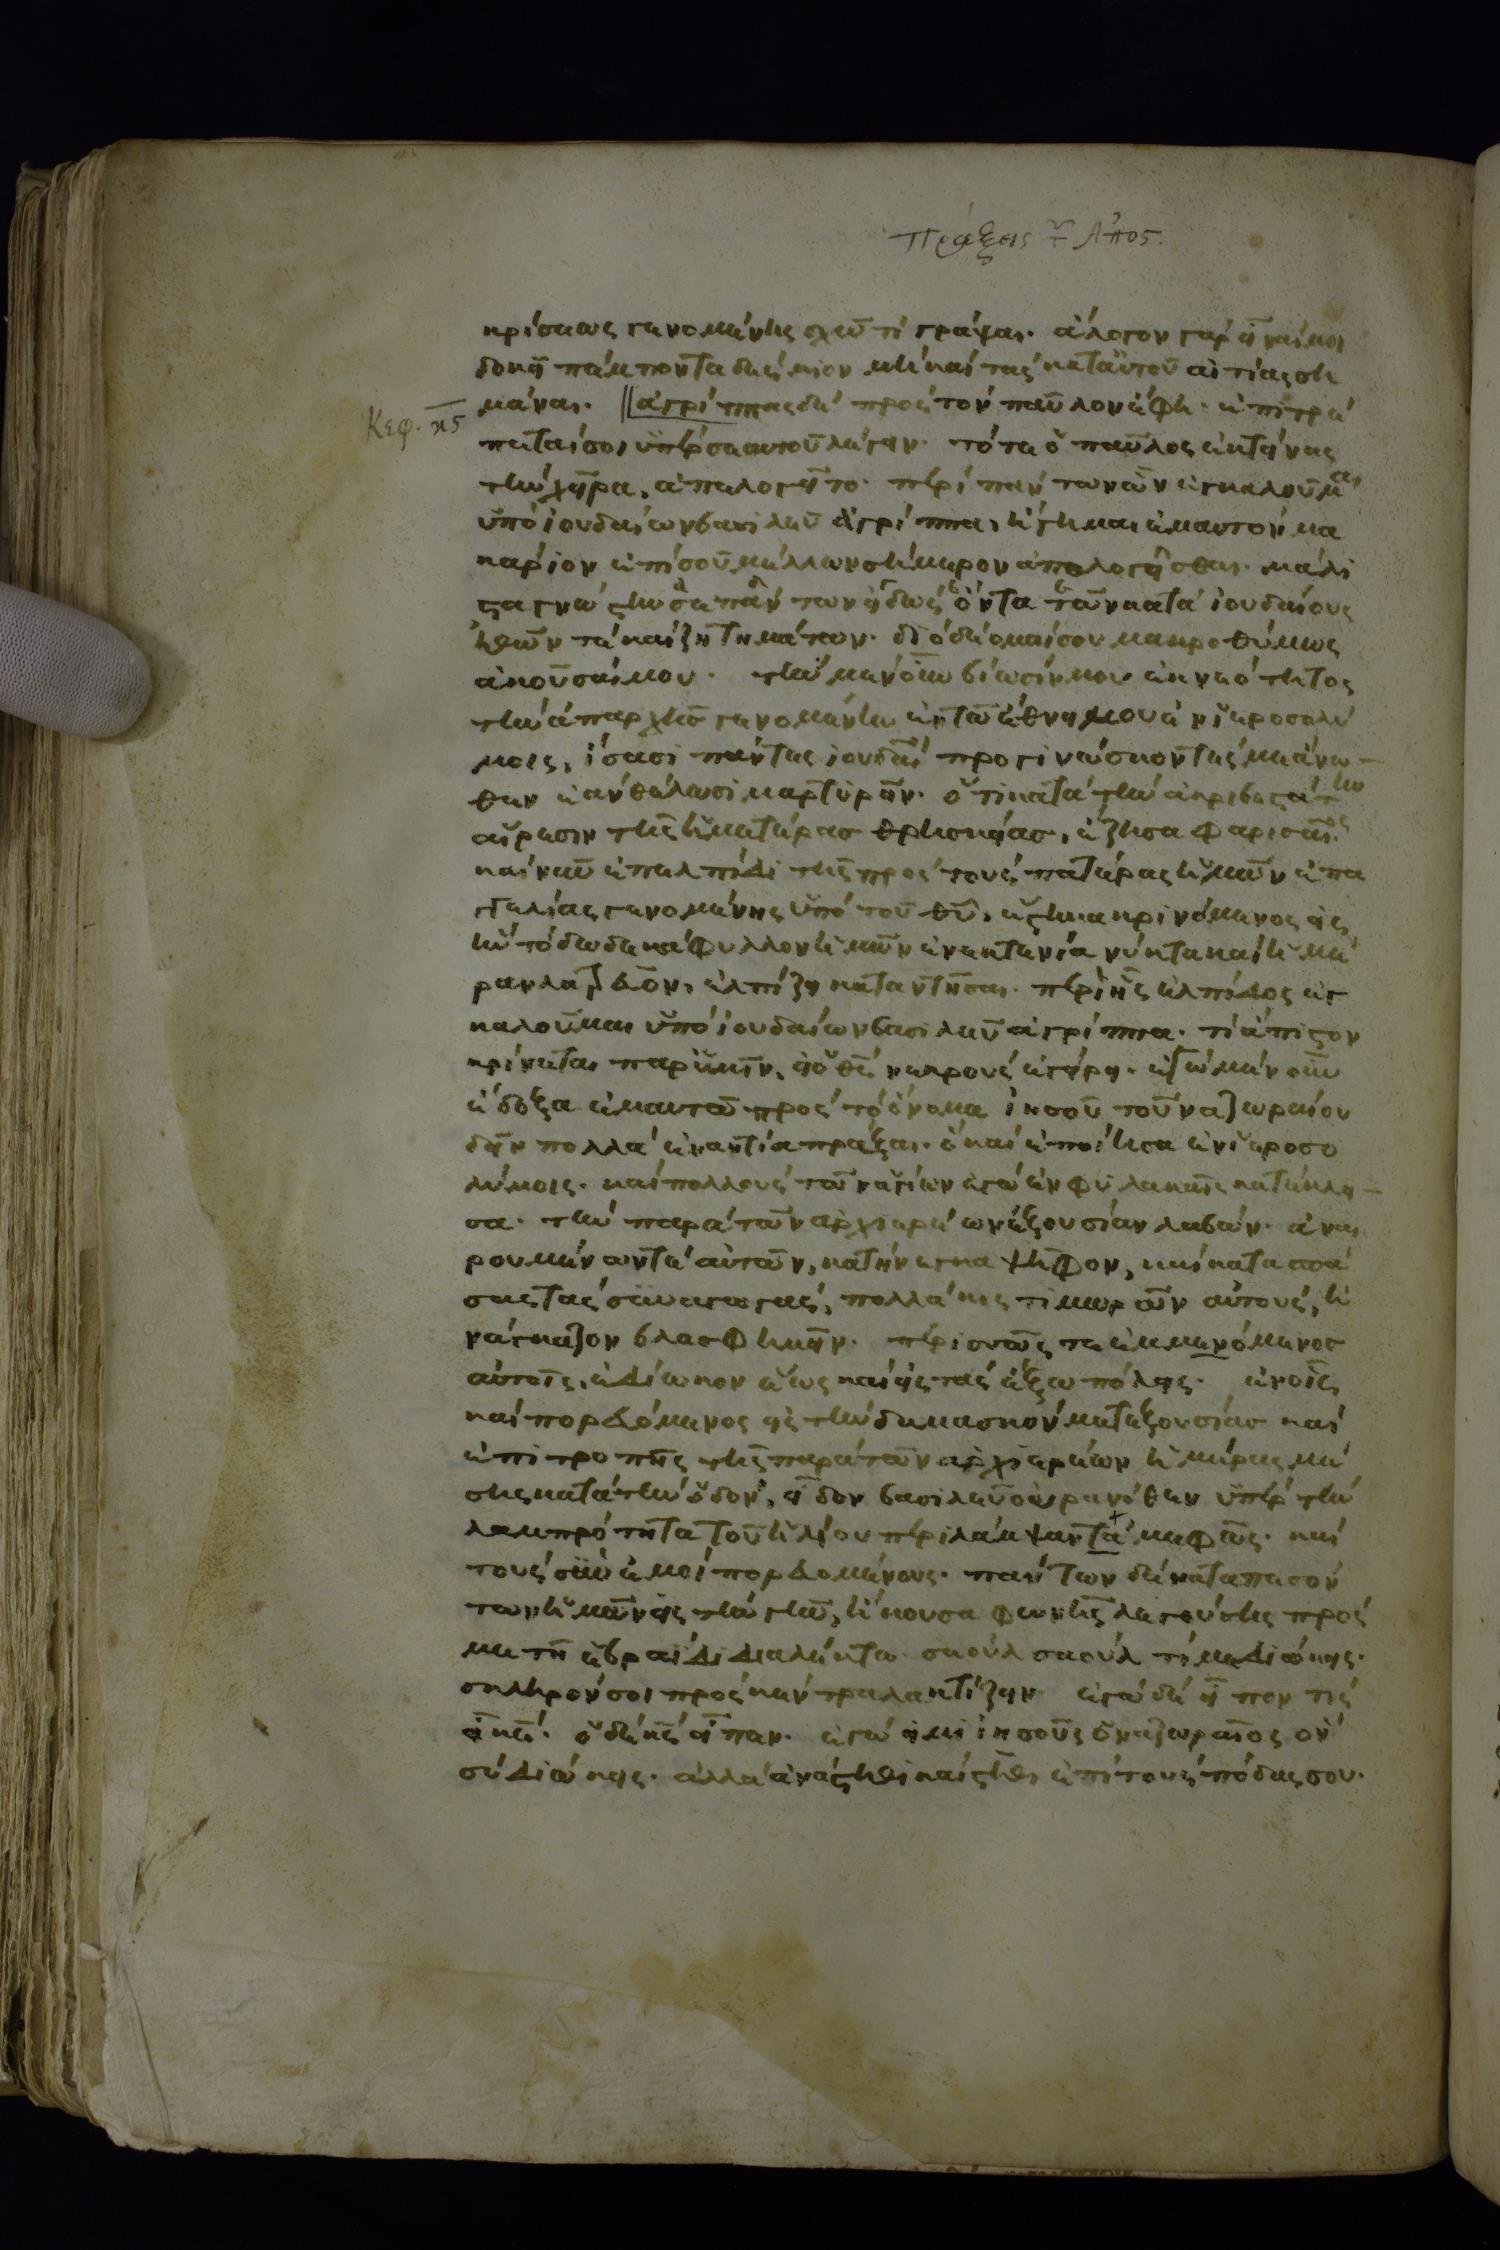 Πράξεις τ Ἀπος.
κρίσεως γενομένης σχῶ τί γράψαι. ἄλογον γάρ εἶναί μοι
δοκεῖ πέμποντα δέσμιον μὴ καί τάς κατ' αὐτοῦ αἰτίας ση
μάναι. ἀγρίππας δέ πρός τόν παῦλον ἔφη. ἐπιτρέ
Κεφ. κς
πεταί σοι ὑπέρ σεαυτοῦ λέγειν. τότε ὁ παῦλος ἐκτείνας
τήν χεῖρα, ἀπελογεῖτο. περί πάντων ὧν ἐγκαλοῦμαι
ὑπό ἰουδαίων βασιλεῦ ἀγρίππα, ἥγημαι ἐμαυτόν μα
κάριον ἐπί σοῦ μέλλων σήμερον ἀπολογεῖσθαι. μάλι
στα γνώστην σε πάντων εἰδώς ὄντα τῶν κατά ἰουδαίους
ἠθῶν τέ καί ζητημάτων. διό δέομαί σου μακροθύμως
ἀκοῦσαί μου. τήν μέν οὖν βίωσίν μου ἐκ νεότητος
τήν ἀπ' ἀρχῆς γενομένην ἐν τῶ ἔθνει μου ἐν ἱεροσολύ
μοις, ἴσασι πάντες ἰουδαῖοι προγινώσκοντές με ἄνω
θεν ἐάν θέλωσι μαρτυρεῖν. ὅτι κατά τήν ἀκριβεστάτην
αἵρεσιν τῆς ἡμετέρας θρησκείας, ἔζησα φαρισαῖος.
καί νῦν ἐπ' ἐλπίδι τῆς πρός τούς πατέρας ἡμῶν ἐπα
γγελίας γενομένης ὑπό τοῦ θῦ, ἕστηκα κρινόμενος εἰς
ἥν τό δωδεκάφυλλον ἡμῶν ἐν ἐκτενία νύκτα καί ἡμέ
ραν λατρεῦον, ἐλπίζει καταντῆσαι. περί ἧς ἐλπίδος ἐγ
καλοῦμαι ὑπό ἰουδαίων βασιλεῦ ἀγρίππα. τί ἄπιστον
κρίνεται παρ' ὑμῖν, εἰ ὁ θς νεκρούς ἐγείρει. ἐγώ μέν οὖν
ἔδοξα ἐμαυτῶ πρός τό ὄνομα ἰησοῦ τοῦ ναζωραίου
δεῖν πολλά ἐναντία πρᾶξαι. ὅ καί ἐποίησα ἐν ἱεροσο
λύμοις. καί πολλούς τῶν ἁγίων ἐγώ ἐν φυλακαῖς κατέκλει
σα. τήν παρά τῶν ἀρχιερέων ἐξουσίαν λαβών. ἀναι
ρουμένων τέ αὐτῶν, κατήνεγκα ψῆφον, καί κατά πά
σας τάς συναγωγάς, πολλάκις τιμωρῶν αὐτούς, ἠ
νάγκαζον βλασφημεῖν. περισσῶς τε ἐμμαινόμενος
αὐτοῖς, ἐδίωκον ἕως καί εἰς τάς ἔξω πόλεις. ἐν οἷς
καί πορευόμενος εἰς τήν δαμασκόν μετ' ἐξουσίας καί
ἐπιτροπῆς τῆς παρά τῶν ἀρχιερέων ἡμέρας μέ
σης κατά τήν ὁδόν, εἶδον βασιλεῦ οὐρανόθεν ὑπέρ τήν
λαμπρότητα τοῦ ἡλίου περιλάμψαντά με φῶς. καί
τούς σύν ἐμοί πορευομένους. πάντων δέ καταπεσόν
των ἡμῶν εἰς τήν γῆν, ἤκουσα φωνῆς λεγούσης πρός
με τῆ ἑβραΐδι διαλέκτω. σαούλ σαούλ τί με διώκεις.
σκληρόν σοι πρός κέντρα λακτίζειν. ἐγώ δέ εἶπον τίς
εἶ κε. ὁ δέ κς εἶπεν. ἐγώ εἰμι ἰησοῦς ὁ ναζωραῖος ὅν
σύ διώκεις. ἀλλά ἀνάστηθι καί στῆθι ἐπί τούς πόδας σου.